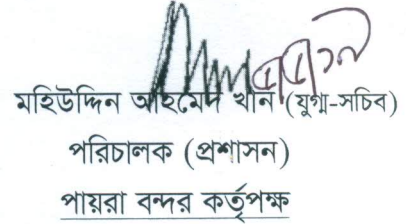 মহিউদ্দিন আহমেদ খান (যুগ্ম-সচিব)
পরিচালক (প্রশাসন)
পায়রা বন্দর কর্তৃপক্ষ